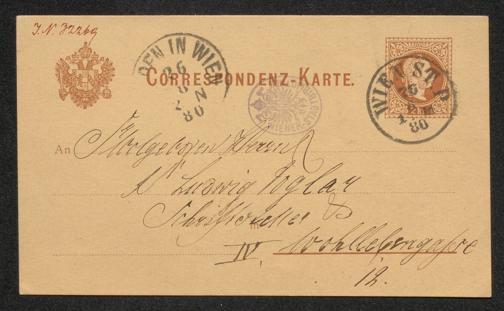 J.N. 32269
CORRESPONDENZ-KARTE.
DEN IN WIEN
26
8
80
N
WIEN ST. P.
26
80
An
Wohlgeboren Herrn
Dr Ludwig Foglar
Schriftsteller
IV. Wohllebengasse
12.